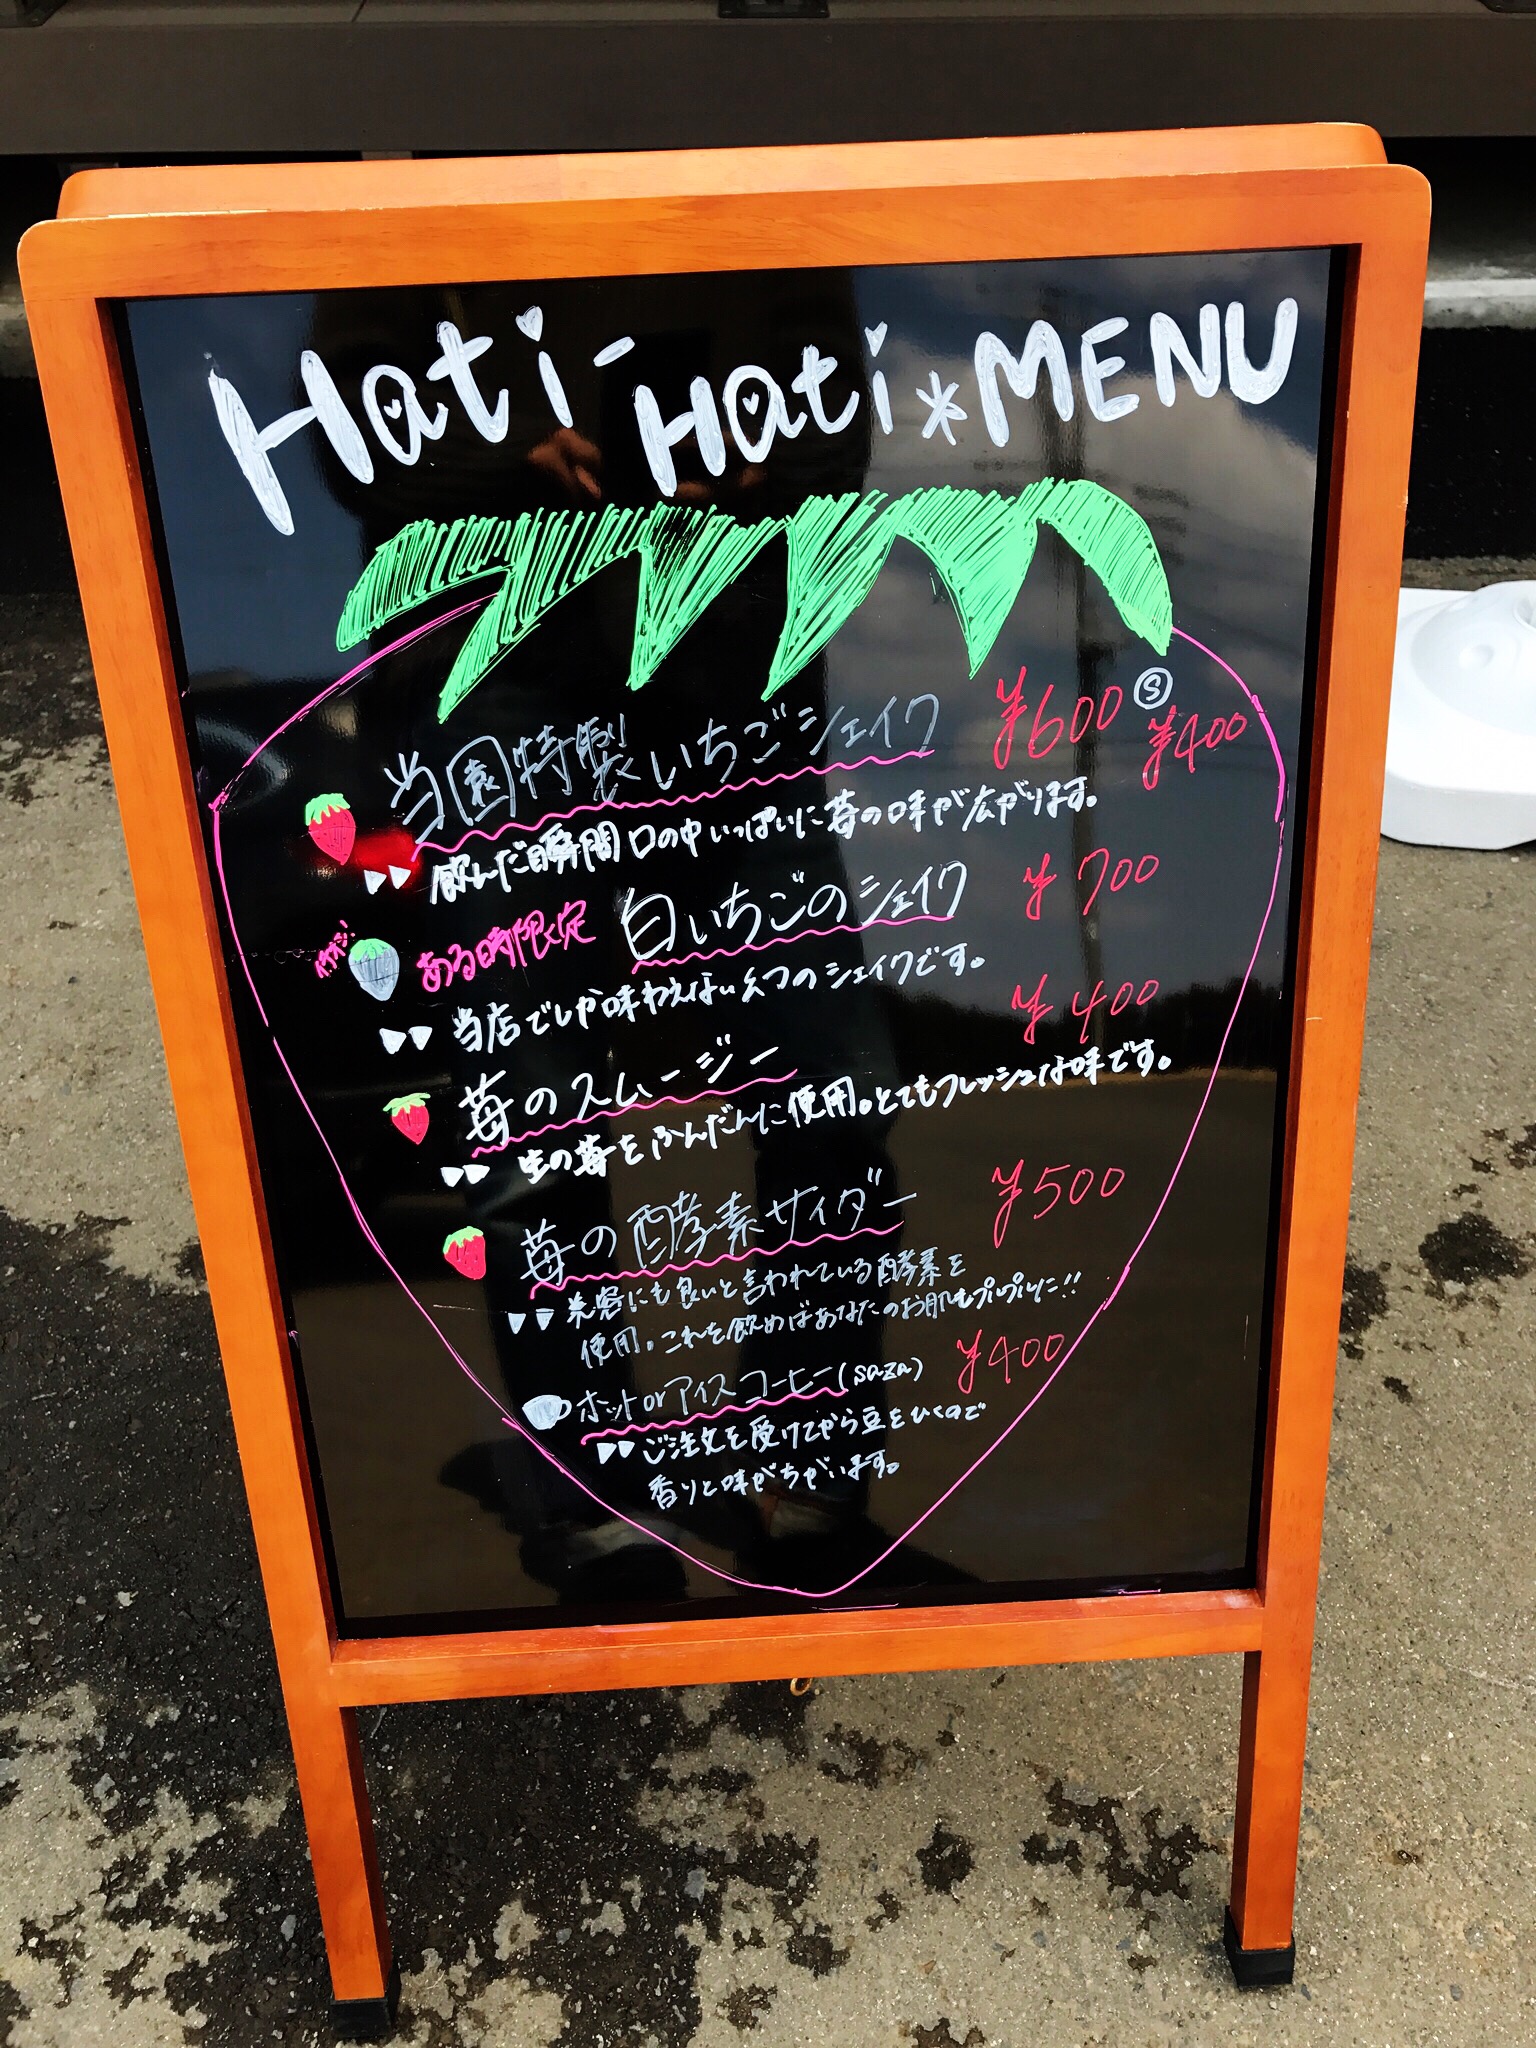 Hati-Hati*MENU
当園特製いちごシェイク ¥600 Ⓢ ¥400
▷▷ 飲んだ瞬間口の中いっぱいに苺の味が広がります。
イチオシ! ある時限定 白いちごのシェイク ¥700
▷▷ 当店でしか味わえない幻のシェイクです。
苺のスムージー ¥400
▷▷ 生の苺をふんだんに使用。とてもフレッシュな味です。
苺の酵素サイダー ¥500
▷▷ 美容にも良いと言われている酵素を
使用。これを飲めばあなたのお肌もプルプルに!!
ホットorアイスコーヒー(saza) ¥400
▷▷ ご注文を受けてから豆をひくので
香りと味がちがいます。